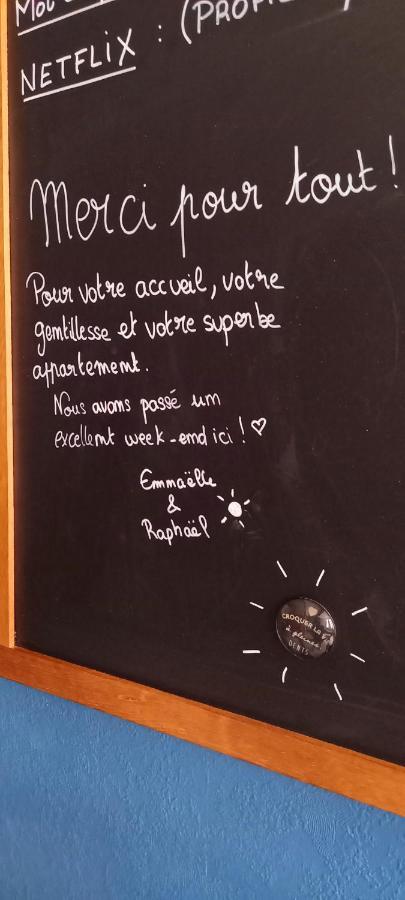 NETFLIX :
Merci pour tout !
Pour votre accueil, votre
gentillesse et votre superbe
appartement.
Nous avons passé un
excellent week-end ici ! ♡
Emmaëlle
&
Raphaël
CROQUER LA
à pleines
DENTS